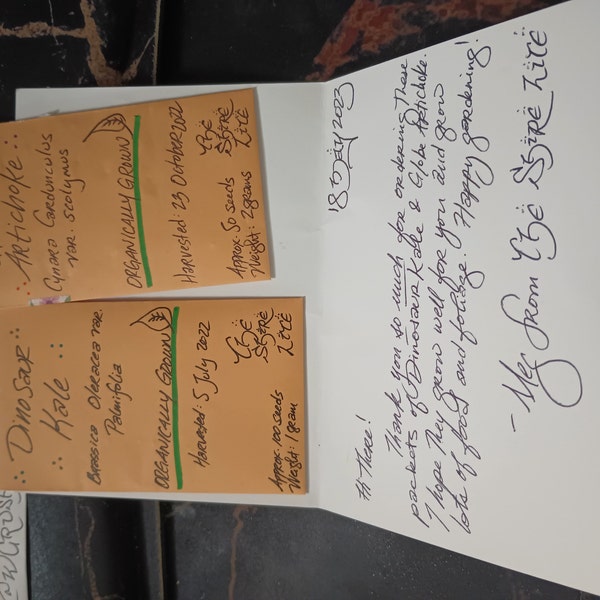 Dinosaur
Kale
Brassica Oleracea var.
Palmifolia
ORGANICALLY GROWN
Harvested: 5 July 2022
The
Shire
Life
Approx. 100 seeds
Weight: 1 gram
Artichoke
Cynara Cardunculus
var. scolymus
ORGANICALLY GROWN
Harvested: 23 October 2022
The
Shire
Life
Approx. 50 seeds
Weight: 2 grams
Hi There!
Thank you so much for ordering these
packets of Dinosaur Kale & Globe Artichoke.
I hope they grow well for you and grow
lots of food and foliage. Happy gardening!
- Meg from The Shire Life